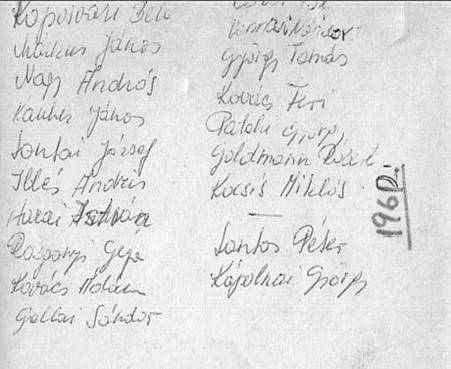 Kaposvári Béla
Márkus János
Nagy András
Kanker János
Lontai József
Illés András
Harai István
Rozgonyi Géza
Kovács Ádám
Gallai Sándor
Nándor
György Tamás
Kovács Feri
Pataki György
Goldmann Robert
Kocsis Miklós
—
Santos Péter
Kápolnai György
196